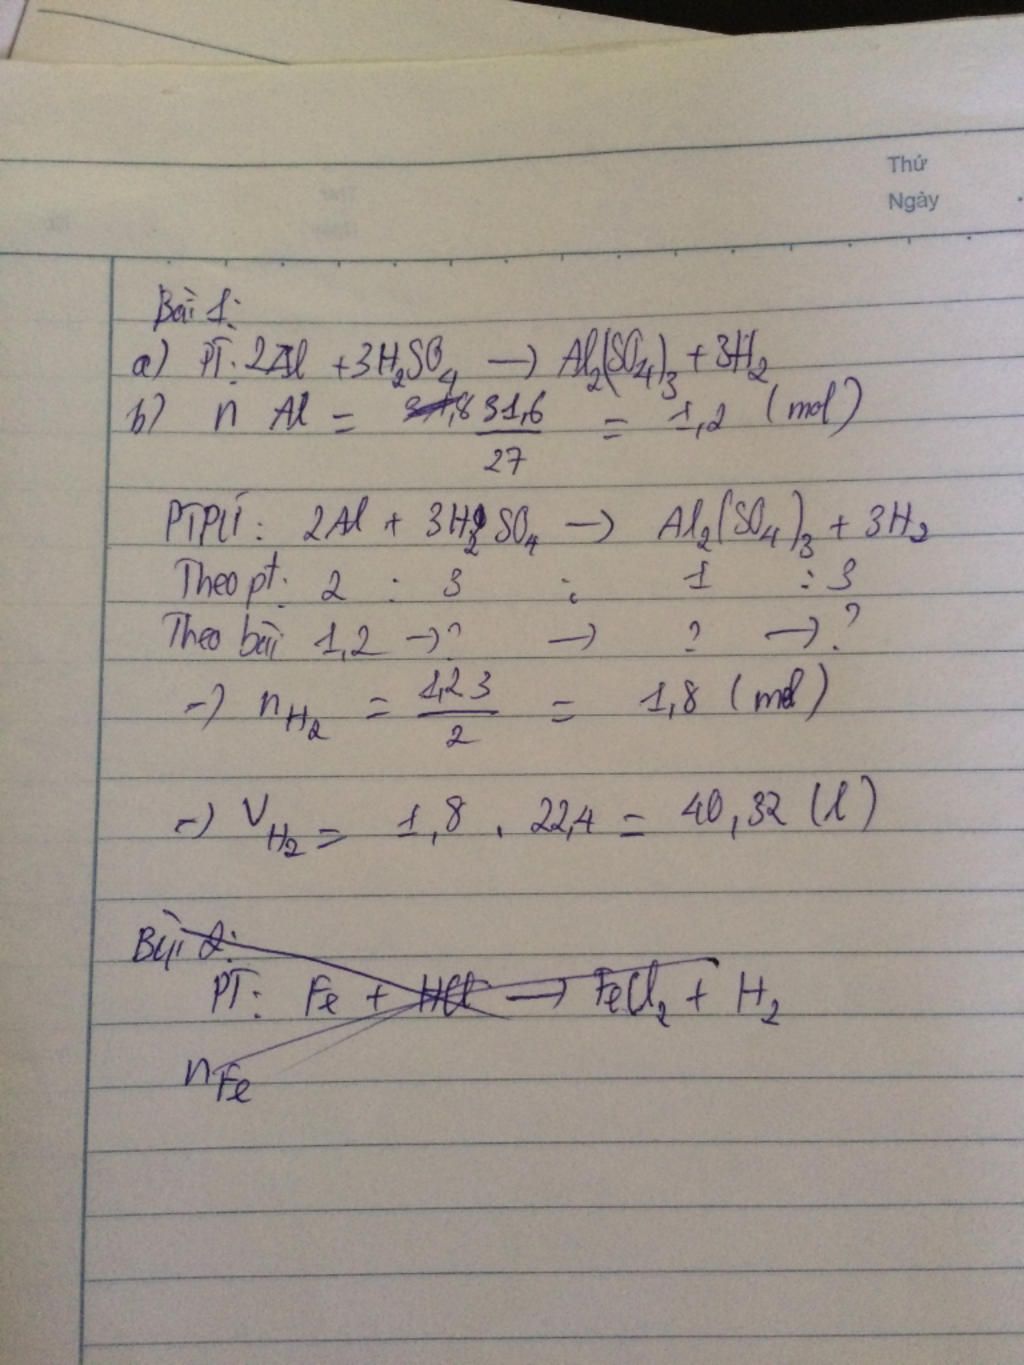 Thứ
Ngày
Bài 1:
a) PT: 2Al + 3H₂SO₄ → Al₂(SO₄)₃ + 3H₂
b) n Al = 31,6/27 = 1,2 (mol)
PTPƯ: 2Al + 3H₂SO₄ → Al₂(SO₄)₃ + 3H₂
Theo pt: 2 : 3 : 1 : 3
Theo bài 1,2 → ? → ? → ?
→ nH₂ = 1,2.3/2 = 1,8 (mol)
→ VH₂ = 1,8 . 22,4 = 40,32 (l)
Bài 2:
PT: Fe + HCl → FeCl₂ + H₂
nFe